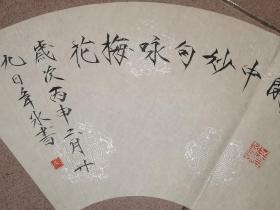 中妙句咏梅花
歲次丙申二月廿
九日書